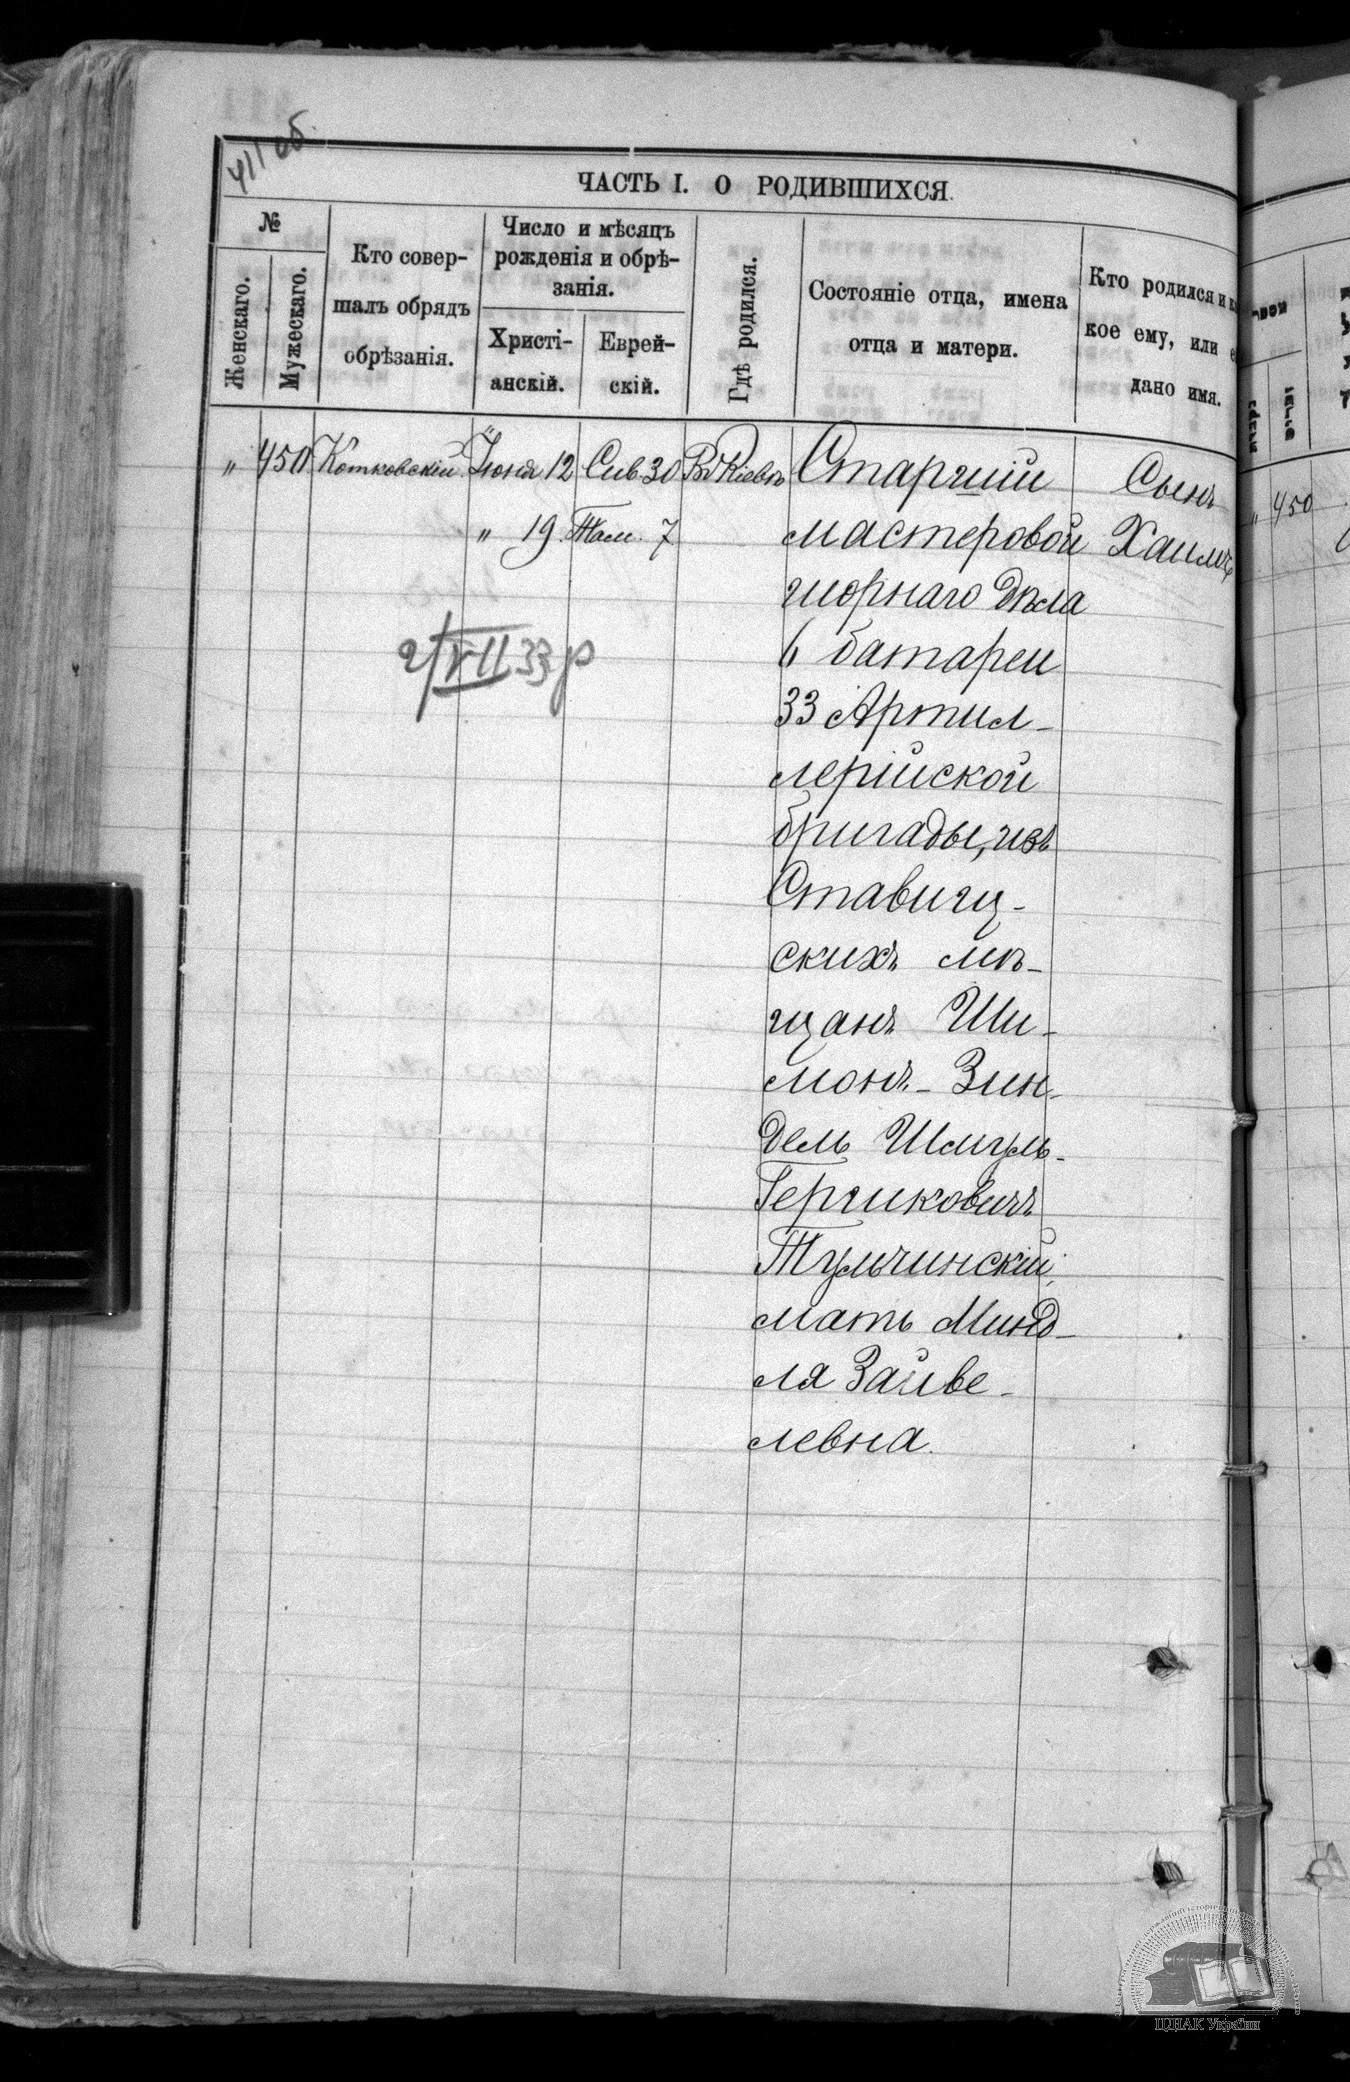 411 об.
ЧАСТЬ I. О РОДИВШИХСЯ.
№
Женскаго.
Мужескаго.
Кто совер-
шалъ обрядъ
обрѣзанія.
Число и мѣсяцъ
рожденія и обрѣ-
занія.
Христі-
анскій.
Еврей-
скій.
Гдѣ родился.
Состояніе отца, имена
отца и матери.
Кто родился и ка
кое ему, или е
дано имя.
" 450 Котковскій. Іюня 12 Сив. 30 Въ Кіевѣ Старшій Сынъ
" 19. Там. 7. мастеровой Хаимъ
шорнаго дѣла
6 батареи
33 Артил-
лерійской
бригады, изъ
Ставищ-
скихъ мѣ-
щанъ Ши-
монъ-Зин-
дель Шмуль-
Гершковичъ
Тульчинскій,
мать Минд-
ля Зайве-
левна.
2/VII 33 р
" 450
ЦДІАК України